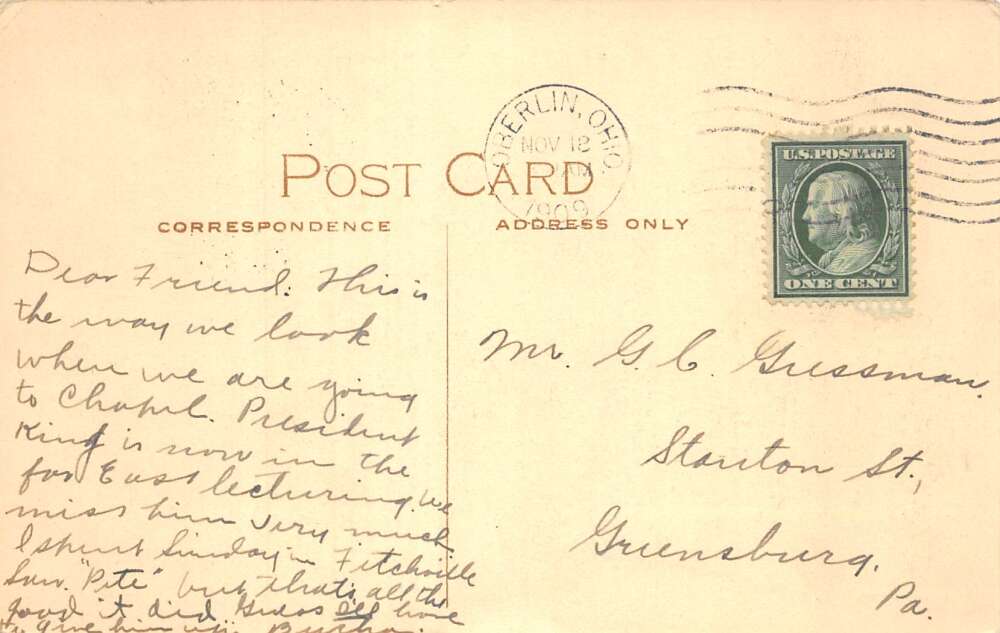 POST CARD
CORRESPONDENCE
ADDRESS ONLY
OBERLIN, OHIO.
NOV 12
AM
1909
U.S. POSTAGE
ONE CENT
Dear Friend: This is
the way we look
when we are going
to Chapel. President
King is now in the
far East lecturing. We
miss him very much
I spent Sunday in Fitchville
Saw "Pete" but that's all the
good it did. Guess I'll have
to give him up.
Mr. G. C. Gressman,
Stanton St.,
Greensburg,
Pa.